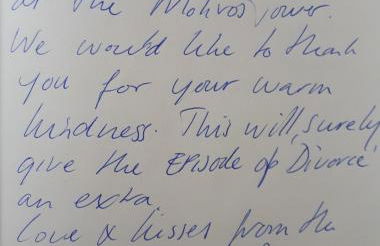 at the
We would like to thank
you for your warm
kindness. This will, surely
give the EPISODE of 'Divorce'
an extra.
love & kisses from the